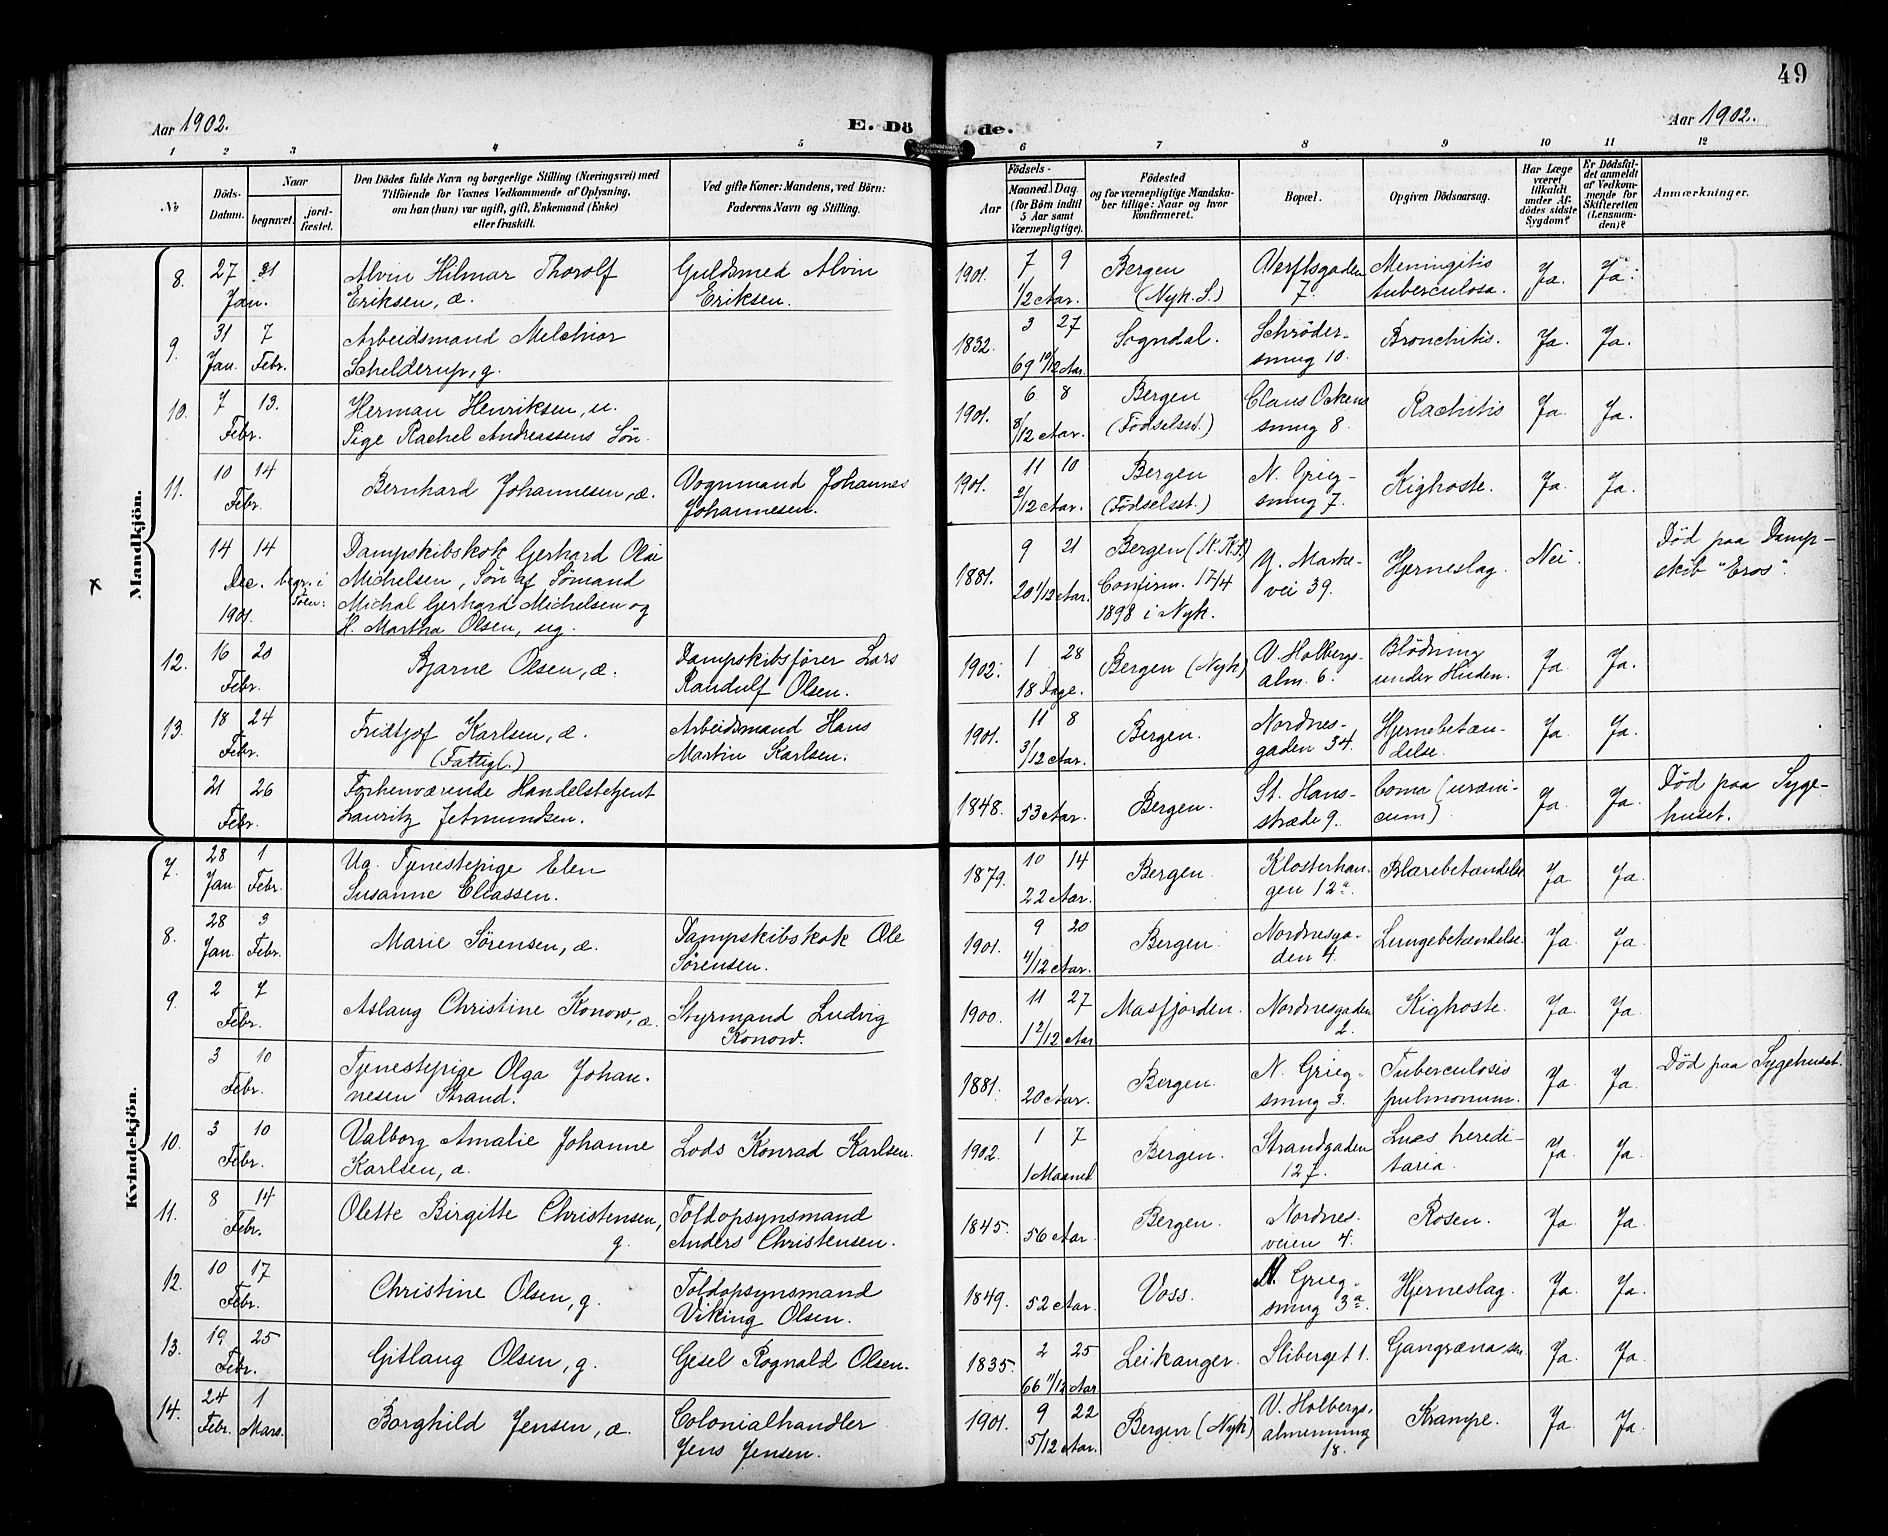 49
Aar 1902.
E. Döde.
Aar 1902.
1 2 3 4 5 6 7 8 9 10 11 12
No
Döds-Datum.
Naar
begravet.
jord-fæstet.
Den Dödes fulde Navn og borgerlige Stilling (Næringsvei) med
Tilföiende for Voxnes Vedkommende af Oplysning,
om han (hun) var ugift, gift, Enkemand (Enke)
eller fraskilt.
Ved gifte Koner: Mandens, ved Börn:
Faderens Navn og Stilling.
Födsels-
Aar
Maaned. Dag
(for Börn indtil
5 Aar samt
Værnepligtige).
Födested
og for værnepligtige Mandska-
ber tillige: Naar og hvor
konfirmeret.
Bopæl.
Opgiven Dödsaarsag.
Har Læge
været
tilkaldt
under Af-
dödes sidste
Sygdom?
Er Dödsfal-
det anmeldt
af Vedkom-
mende for
Skifteretten
(Lensman-
den)?
Anmærkninger.
Mandkjön.
8. 27 31 Jan. Alvin Hilmar Thorolf Eriksen, æ. Guldsmed Alvin Eriksen. 1901. 7 9 1/2 Aar. Bergen (Nyk. S.) Verftsgaden 7. Meningitis tuberculosa. Ja. Ja.
9. 31 Jan. 7 Febr. Arbeidsmand Melchior Schelderup, g. 1832. 3 27 69 10/12 Aar. Sogndal. Schröder-smug 10. Bronchitis. Ja. Ja.
10. 7 13. Febr. Herman Henriksen, u. Pige Rachel Andreassens Sön. 1901. 6 8 8/12 Aar. Bergen (Födselsst.) Claus Ockens smug 8. Rachitis Ja. Ja.
11. 10 14 Febr. Bernhard Johannesen, æ. Vognmand Johannes Johannesen. 1901. 11 10 2/12 Aar. Bergen (Födselsst.) N. Grieg-smug 7. Kighoste. Ja. Ja.
x 14 14 Dec. 1901. begr. i Söen: Dampskibskok Gerhard Olai Michelsen, Sön af Sömand Michal Gerhard Michelsen og H. Martha Olsen, ug. 1881. 9 21 20 1/12 Aar. Bergen (N. K.) Confirm. 17/4 1898 i Nyk. Y. Marke-vei 39. Hjerneslag. Nei. Död paa Damp-skib "Eros".
12. 16 20 Febr. Bjarne Olsen, æ. Dampskibsförer Lars Randulf Olsen. 1902. 1 28 18 Dage. Bergen (Nyk) V. Holbergs-alm. 6. Blödning under Huden. Ja. Ja.
13. 18 24 Febr. Fridtjof Karlsen, æ. (Fattigl.) Arbeidsmand Hans Martin Karlsen. 1901. 11 8 3/12 Aar. Bergen. Nordnes-gaden 34. Hjernebetæn-delse. Ja. Ja.
21 26 Febr. Forhenværende Handelsbetjent Lauritz Jetmundsen. 1848. 53 Aar. Bergen. St. Hans-stræde 9. Coma (uræmi-cum) Ja. Ja. Död paa Syge-huset.
Kvindekjön.
7. 28 Jan. 1 Febr. Ug. Tjenestepige Elen Susanne Eliassen. 1879. 10 14 22 Aar. Bergen. Klosterhau-gen 12a. Blærebetændelse Ja. Ja.
8. 28 Jan. 3 Febr. Marie Sörensen, æ. Dampskibskok Ole Sörensen. 1901. 9 20 4/12 Aar. Bergen. Nordnesga-den 4. Lungebetændelse. Ja. Ja.
9. 2 7 Febr. Aslaug Christine Konow, æ. Styrmand Ludvig Konow. 1900. 11 27 1 2/12 Aar Masfjorden. Nordnesgaden 2. Kighoste. Ja. Ja.
3 10 Febr. Tjenestepige Olga Johan-nesen Strand. 1881. 20 Aar. Bergen. N. Grieg-smug 3. Tuberculosis pulmonum. Ja. Ja. Död paa Sygehuset.
10. 3 10 Febr. Valborg Amalie Johanne Karlsen, æ. Lods Konrad Karlsen. 1902. 1 7 1 Maaned Bergen. Strandgaden 127. Lues heredi-taria. Ja. Ja.
11. 8 14 Febr. Olette Birgitte Christensen, g. Toldopsynsmand Anders Christensen. 1845. 56 Aar. Bergen. Nordnes-veien 4. Rosen. Ja. Ja.
12. 10 17 Febr. Christine Olsen, g. Toldopsynsmand Viking Olsen. 1849. 52 Aar. Voss. N. Grieg-smug 3a. Hjerneslag. Ja. Ja.
13. 19 25 Febr. Gitlaug Olsen, g. Gesel Rognald Olsen. 1835. 2 25 66 11/12 Aar Leikanger. Sliberget 1. Gangræna sen Ja. Ja.
14. 24 Febr. 1 Mars. Borghild Jensen, æ. Colonialhandler Jens Jensen. 1901. 9 22 5/12 Aar. Bergen (Nyk) V. Holbergs-almenning 18. Krampe. Ja. Ja.